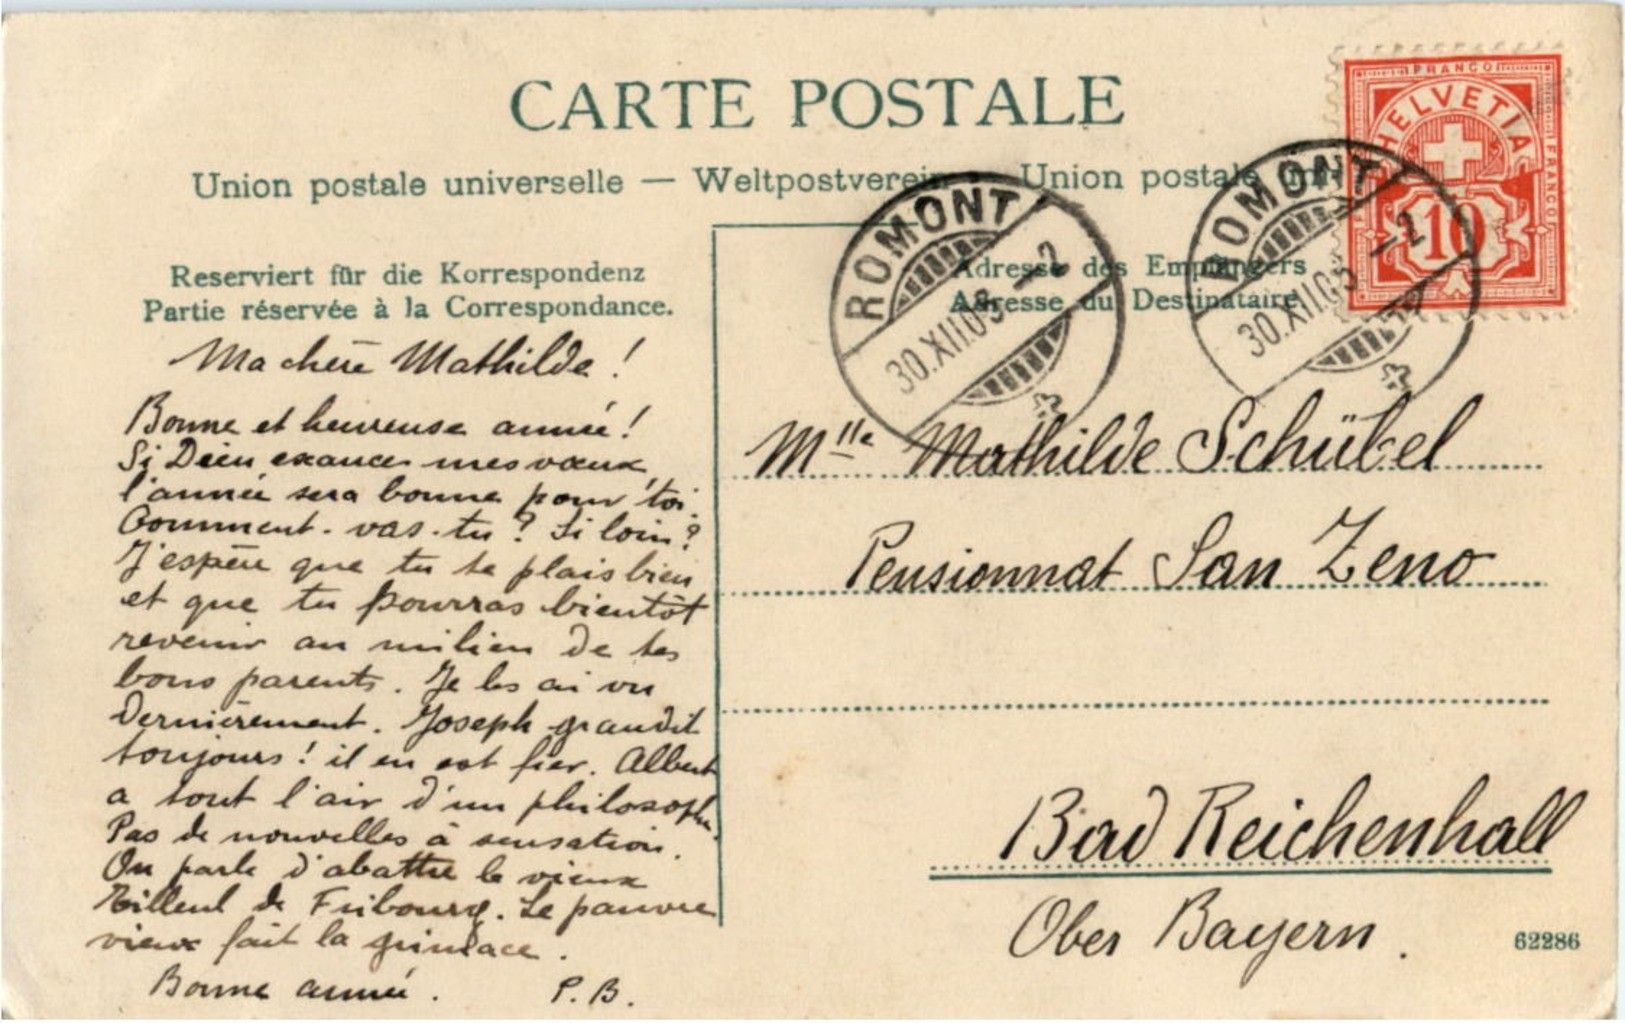 CARTE POSTALE
Union postale universelle — Weltpostverein — Union postale
FRANCO
HELVETIA
FRANCO
10
ROMONT
30.XII.05 – 2
ROMONT
30.XII.05 – 2
Reserviert für die Korrespondenz
Partie réservée à la Correspondance.
Adresse des Empfängers
Adresse du Destinataire
Ma chère Mathilde !
Bonne et heureuse année !
Si Dieu exauce mes vœux,
l'année sera bonne pour toi.
Comment-vas-tu ? Si loin ?
J'espère que tu te plais bien
et que tu pourras bientôt
revenir au milieu de tes
bons parents. Je les ai vu
dernièrement. Joseph grandit
toujours ! il en est fier. Albert
a tout l'air d'un philosophe.
Pas de nouvelles à sensation.
On parle d'abattre le vieux
Tilleul de Fribourg. Le pauvre
vieux fait la grimace.
Bonne année. P. B.
Mlle Mathilde Schübel
Pensionnat San Zeno
Bad Reichenhall
Ober Bayern.
62286